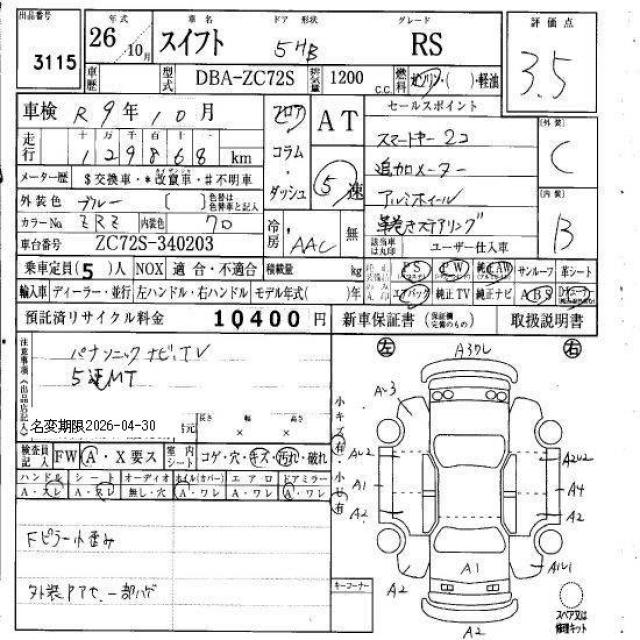 出品番号 3115
年式 26年10月
車名 スイフト
ドア 形状 5HB
グレード RS
評価点 3.5
車歴
型式 DBA-ZC72S
排気量 1200 c.c.
燃料 ガソリン・( )・軽油
車検 R9年10月
フロア コラム・ダッシュ
AT
5速
セールスポイント
スマートキー2コ
追加メーター
アルミホイール
革巻きステアリング
[外装] C
[内装] B
走行 十万千百十 129868 km
メーター歴 $交換車・*改竄車・#不明車
外装色 ブルー [ ] 色替は色替車と記入
カラーNo. ZRZ 内装色 70
冷房 AAC 無
該当車は丸印
ユーザー仕入車
車台番号 ZC72S-340203
乗車定員(5)人 NOX 適合・不適合 積載量 kg
PS PW 純正AW サンルーフ 革シート
輸入車 ディーラー・並行 左ハンドル・右ハンドル モデル年式( )年
エアバック 純正TV 純正ナビ ABS
預託済リサイクル料金 10400円
新車保証書 (保証欄完備のもの) 取扱説明書
注意事項(出品店記入)
パナソニックナビ、TV
5速MT
名変期限2026-04-30
長さ 幅 高さ
× ×
検査員記入 FW A・X要ス 室内シート コゲ・穴・キズ・汚れ・破れ
ハンドル シート オーディオ ホイル(カバー) エアロ ドアミラー
A・スレ A・スレ 無し・穴 A・ワレ A・ワレ A・ワレ
Fピラー小歪み
外装Pアセ、一部ハゲ
小キズ有・小ヘコ有
左 右
A3ワレ
A-3
AU2 A2U2
A1 A4
A2 A2
A1
A1U1
A2
A2
キーコーナー
スペア又は修理キット